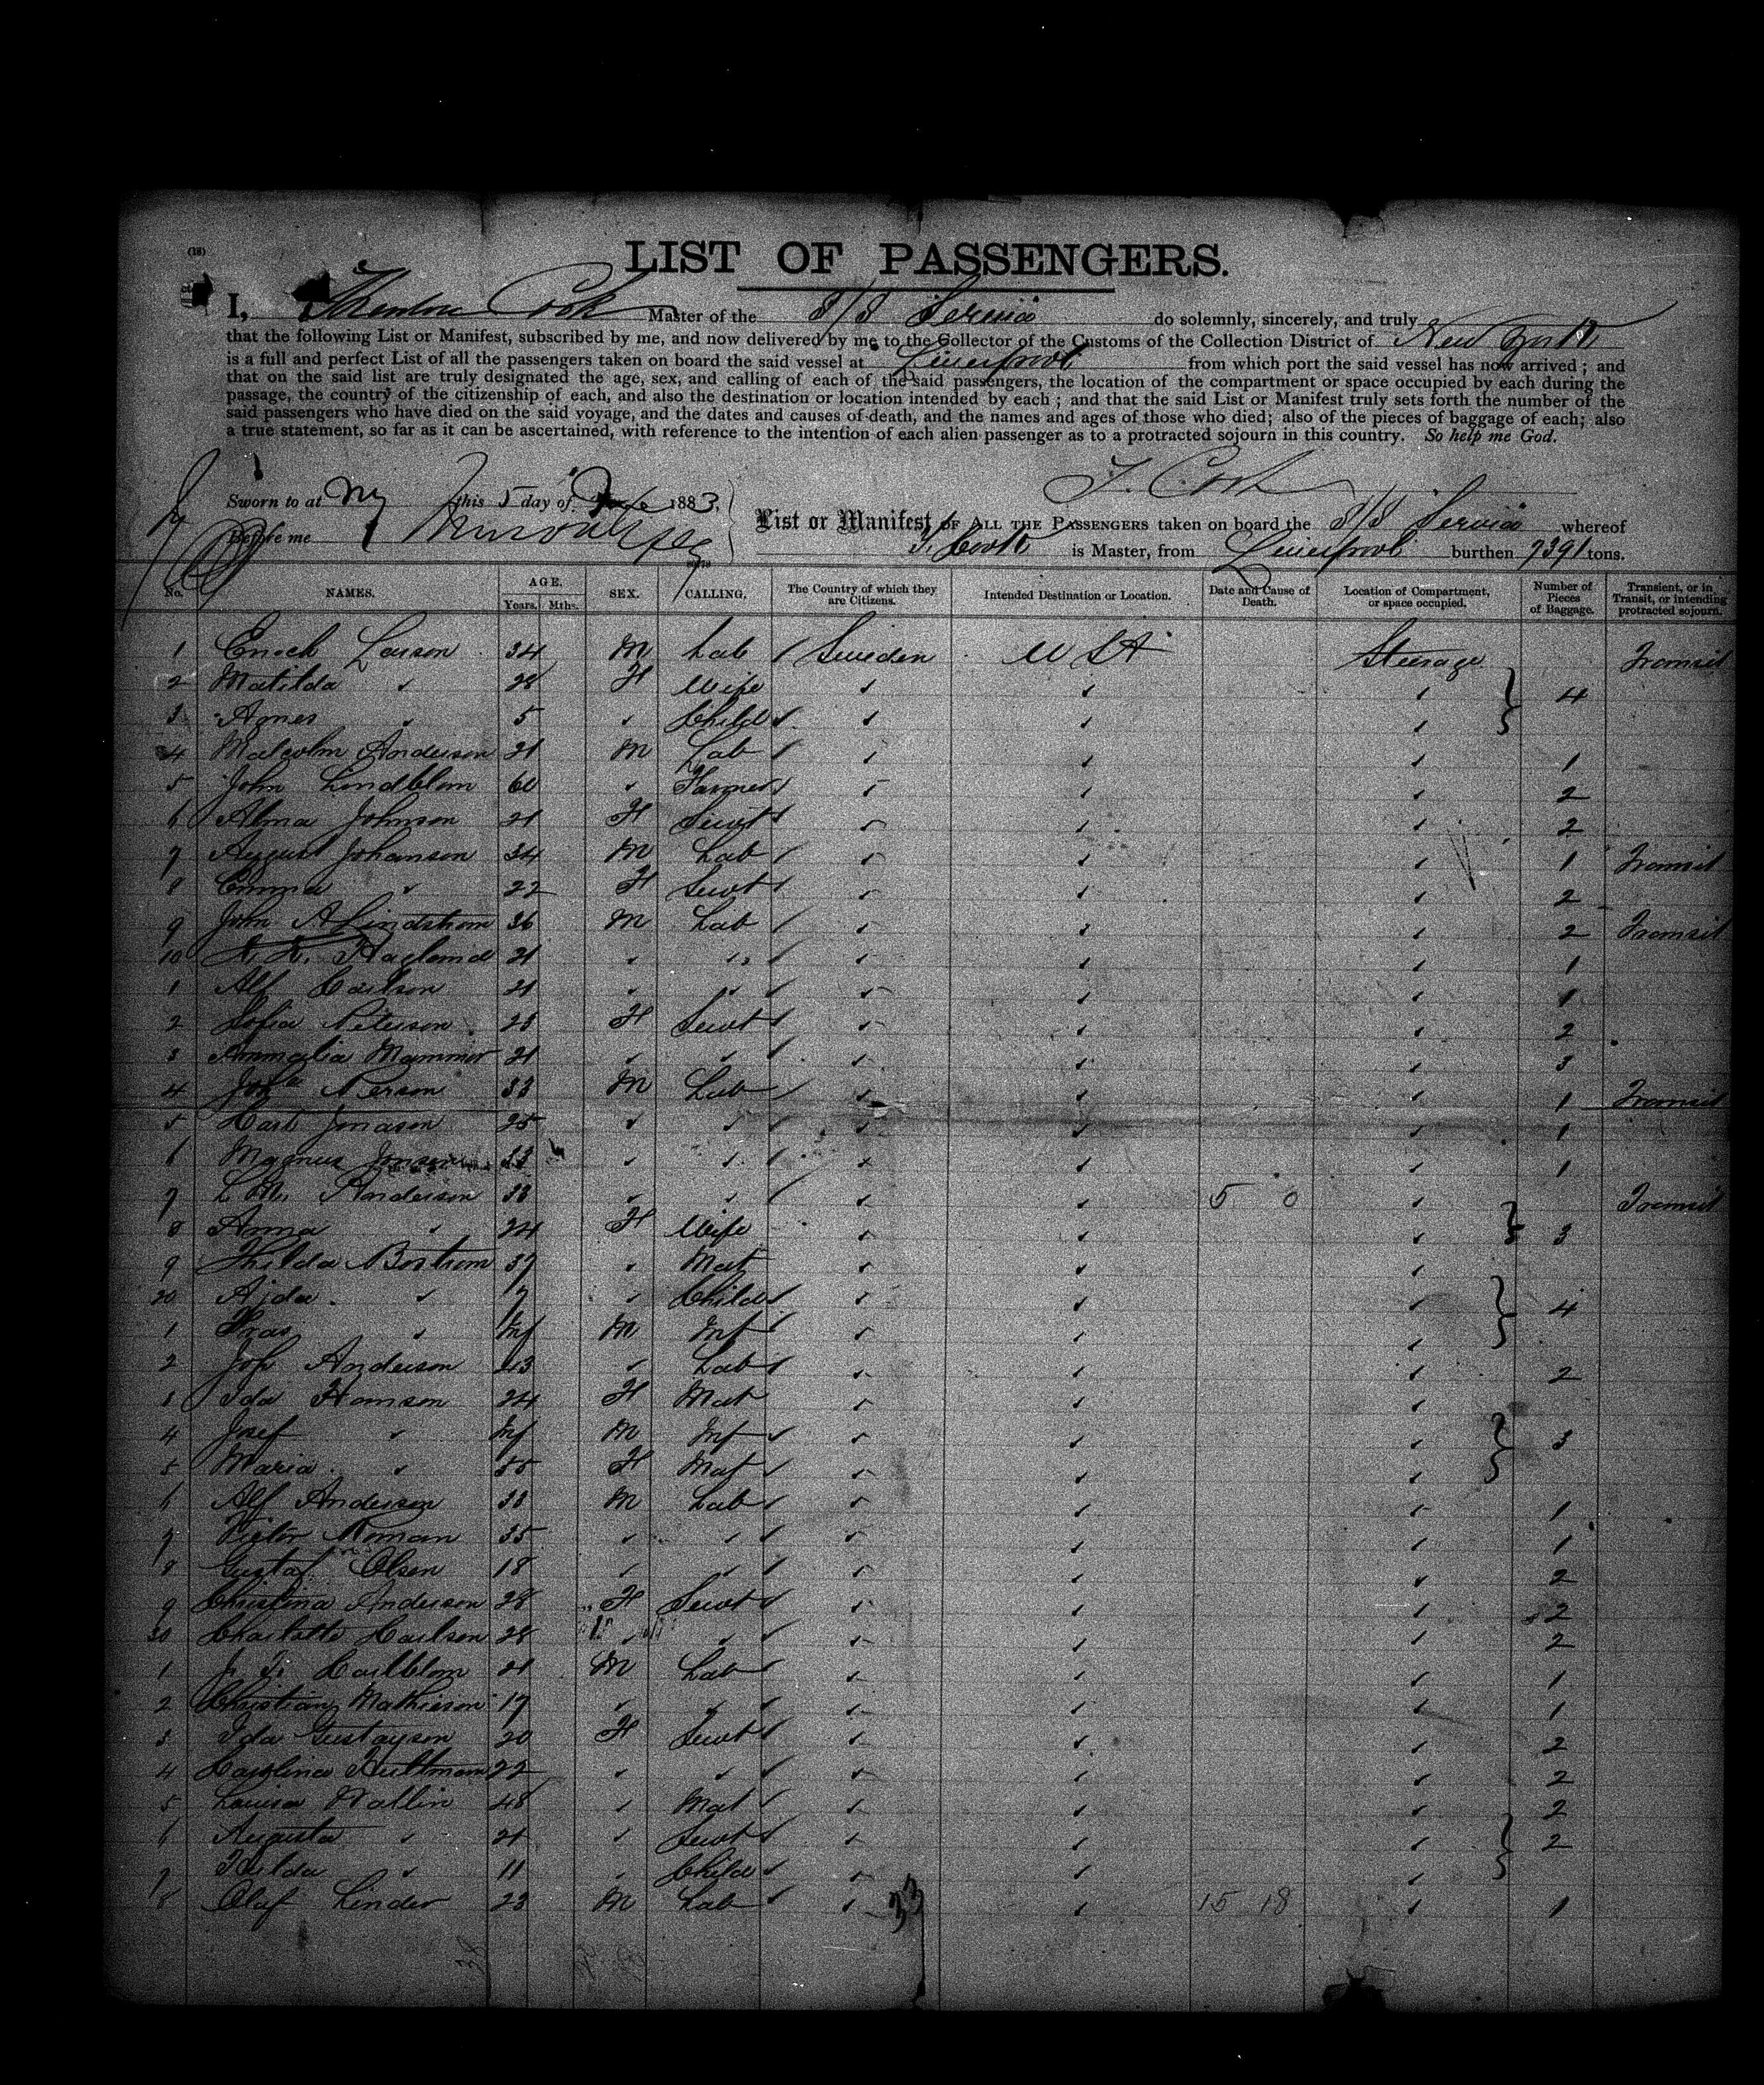 (18)
LIST OF PASSENGERS.
I, Theodore Cook Master of the S/S Servia do solemnly, sincerely, and truly
that the following List or Manifest, subscribed by me, and now delivered by me to the Collector of the Customs of the Collection District of New York
is a full and perfect List of all the passengers taken on board the said vessel at Liverpool from which port the said vessel has now arrived; and
that on the said list are truly designated the age, sex, and calling of each of the said passengers, the location of the compartment or space occupied by each during the
passage, the country of the citizenship of each, and also the destination or location intended by each; and that the said List or Manifest truly sets forth the number of the
said passengers who have died on the said voyage, and the dates and causes of death, and the names and ages of those who died; also of the pieces of baggage of each; also
a true statement, so far as it can be ascertained, with reference to the intention of each alien passenger as to a protracted sojourn in this country. So help me God.
T. Cook
Sworn to at NY this 5 day of 1883,
Before me
List or Manifest OF ALL THE PASSENGERS taken on board the S/S Servia whereof
T. Cook is Master, from Liverpool burthen 7391 tons.
No. NAMES. AGE. Years. Mths. SEX. CALLING. The Country of which they are Citizens. Intended Destination or Location. Date and Cause of Death. Location of Compartment, or space occupied. Number of Pieces of Baggage. Transient, or in Transit, or intending protracted sojourn.
1 Enoch Larson 34 M Lab Sweden USA Steerage Transit
2 Matilda " 28 F Wife 4
3 Agnes " 5 " Child
4 Malcolm Anderson 21 M Lab 1
5 John Lindblom 60 " Farmer 2
6 Alma Johnson 21 F Servt 2
7 August Johanson 34 M Lab 1 Transit
8 Emma " 22 F Servt 2
9 John A Lindstrom 36 M Lab 2 Transit
10 Haglund 21 " " 1
1 Alf Carlson 21 " " 1
2 Sofia Peterson 23 F Servt 2
3 Ammalia 21 " " 3
4 Nerson 33 M Lab 1 Transit
5 Carl Jonason 25 " " 1
6 Magnus Jonson 33 " " 1
7 L M. Anderson 38 " " 5 0 Transit
8 Anna " 24 F Wife 3
9 Hilda Bostrom 37 " Mat
20 Ajda " 7 " Child 4
1 " Inf M Inf
2 Joh Anderson 43 " Lab 2
3 Ida Hanson 24 F Mat
4 Josef " Inf M Inf 3
5 Maria " 55 F Mat
6 Alf Anderson 33 M Lab 1
7 Victor Noman 35 " " 1
8 Gustaf Olsen 18 " " 2
9 Christina Anderson 28 F Servt 2
30 Charlotte Carlson 28 " " 2
1 J. F. Carlblom 21 M Lab 1
2 Christian Mathieson 17 " " 1
3 Ida Gustavson 20 F Servt 2
4 Carolina Hultman 22 " " 2
5 Louisa Wallin 48 " Mat 2
6 Augusta " 21 " Servt 2
7 Hilda " 11 " Child
8 Olaf Linder 23 M Lab 33 15 18 1